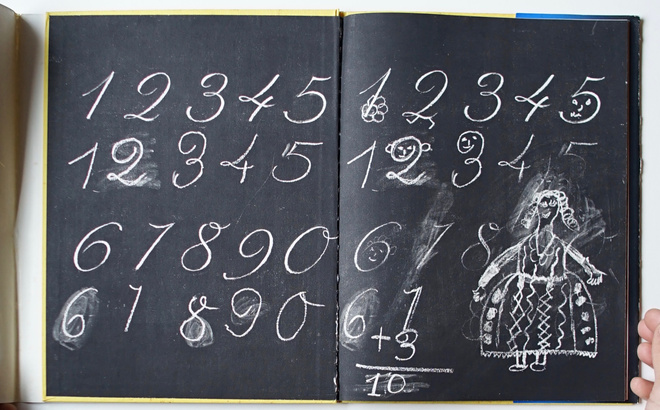 1 2 3 4 5
1 2 3 4 5
6 7 8 9 0
6 7 8 9 0
1 2 3 4 5
1 2 3 4 5
6 7 8
6 7
+ 3
10